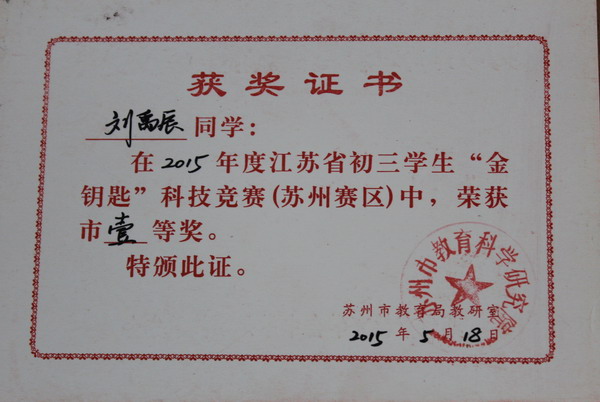 获奖证书
刘禹辰同学：
在2015年度江苏省初三学生“金
钥匙”科技竞赛(苏州赛区)中，荣获
市壹等奖。
特颁此证。
苏州市教育科学研究院
苏州市教育局教研室
2015年5月18日